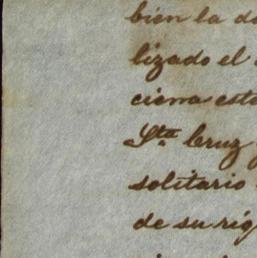 bien la do
lizado el
cierra esto
Sta. Cruz
solitario
de su riq